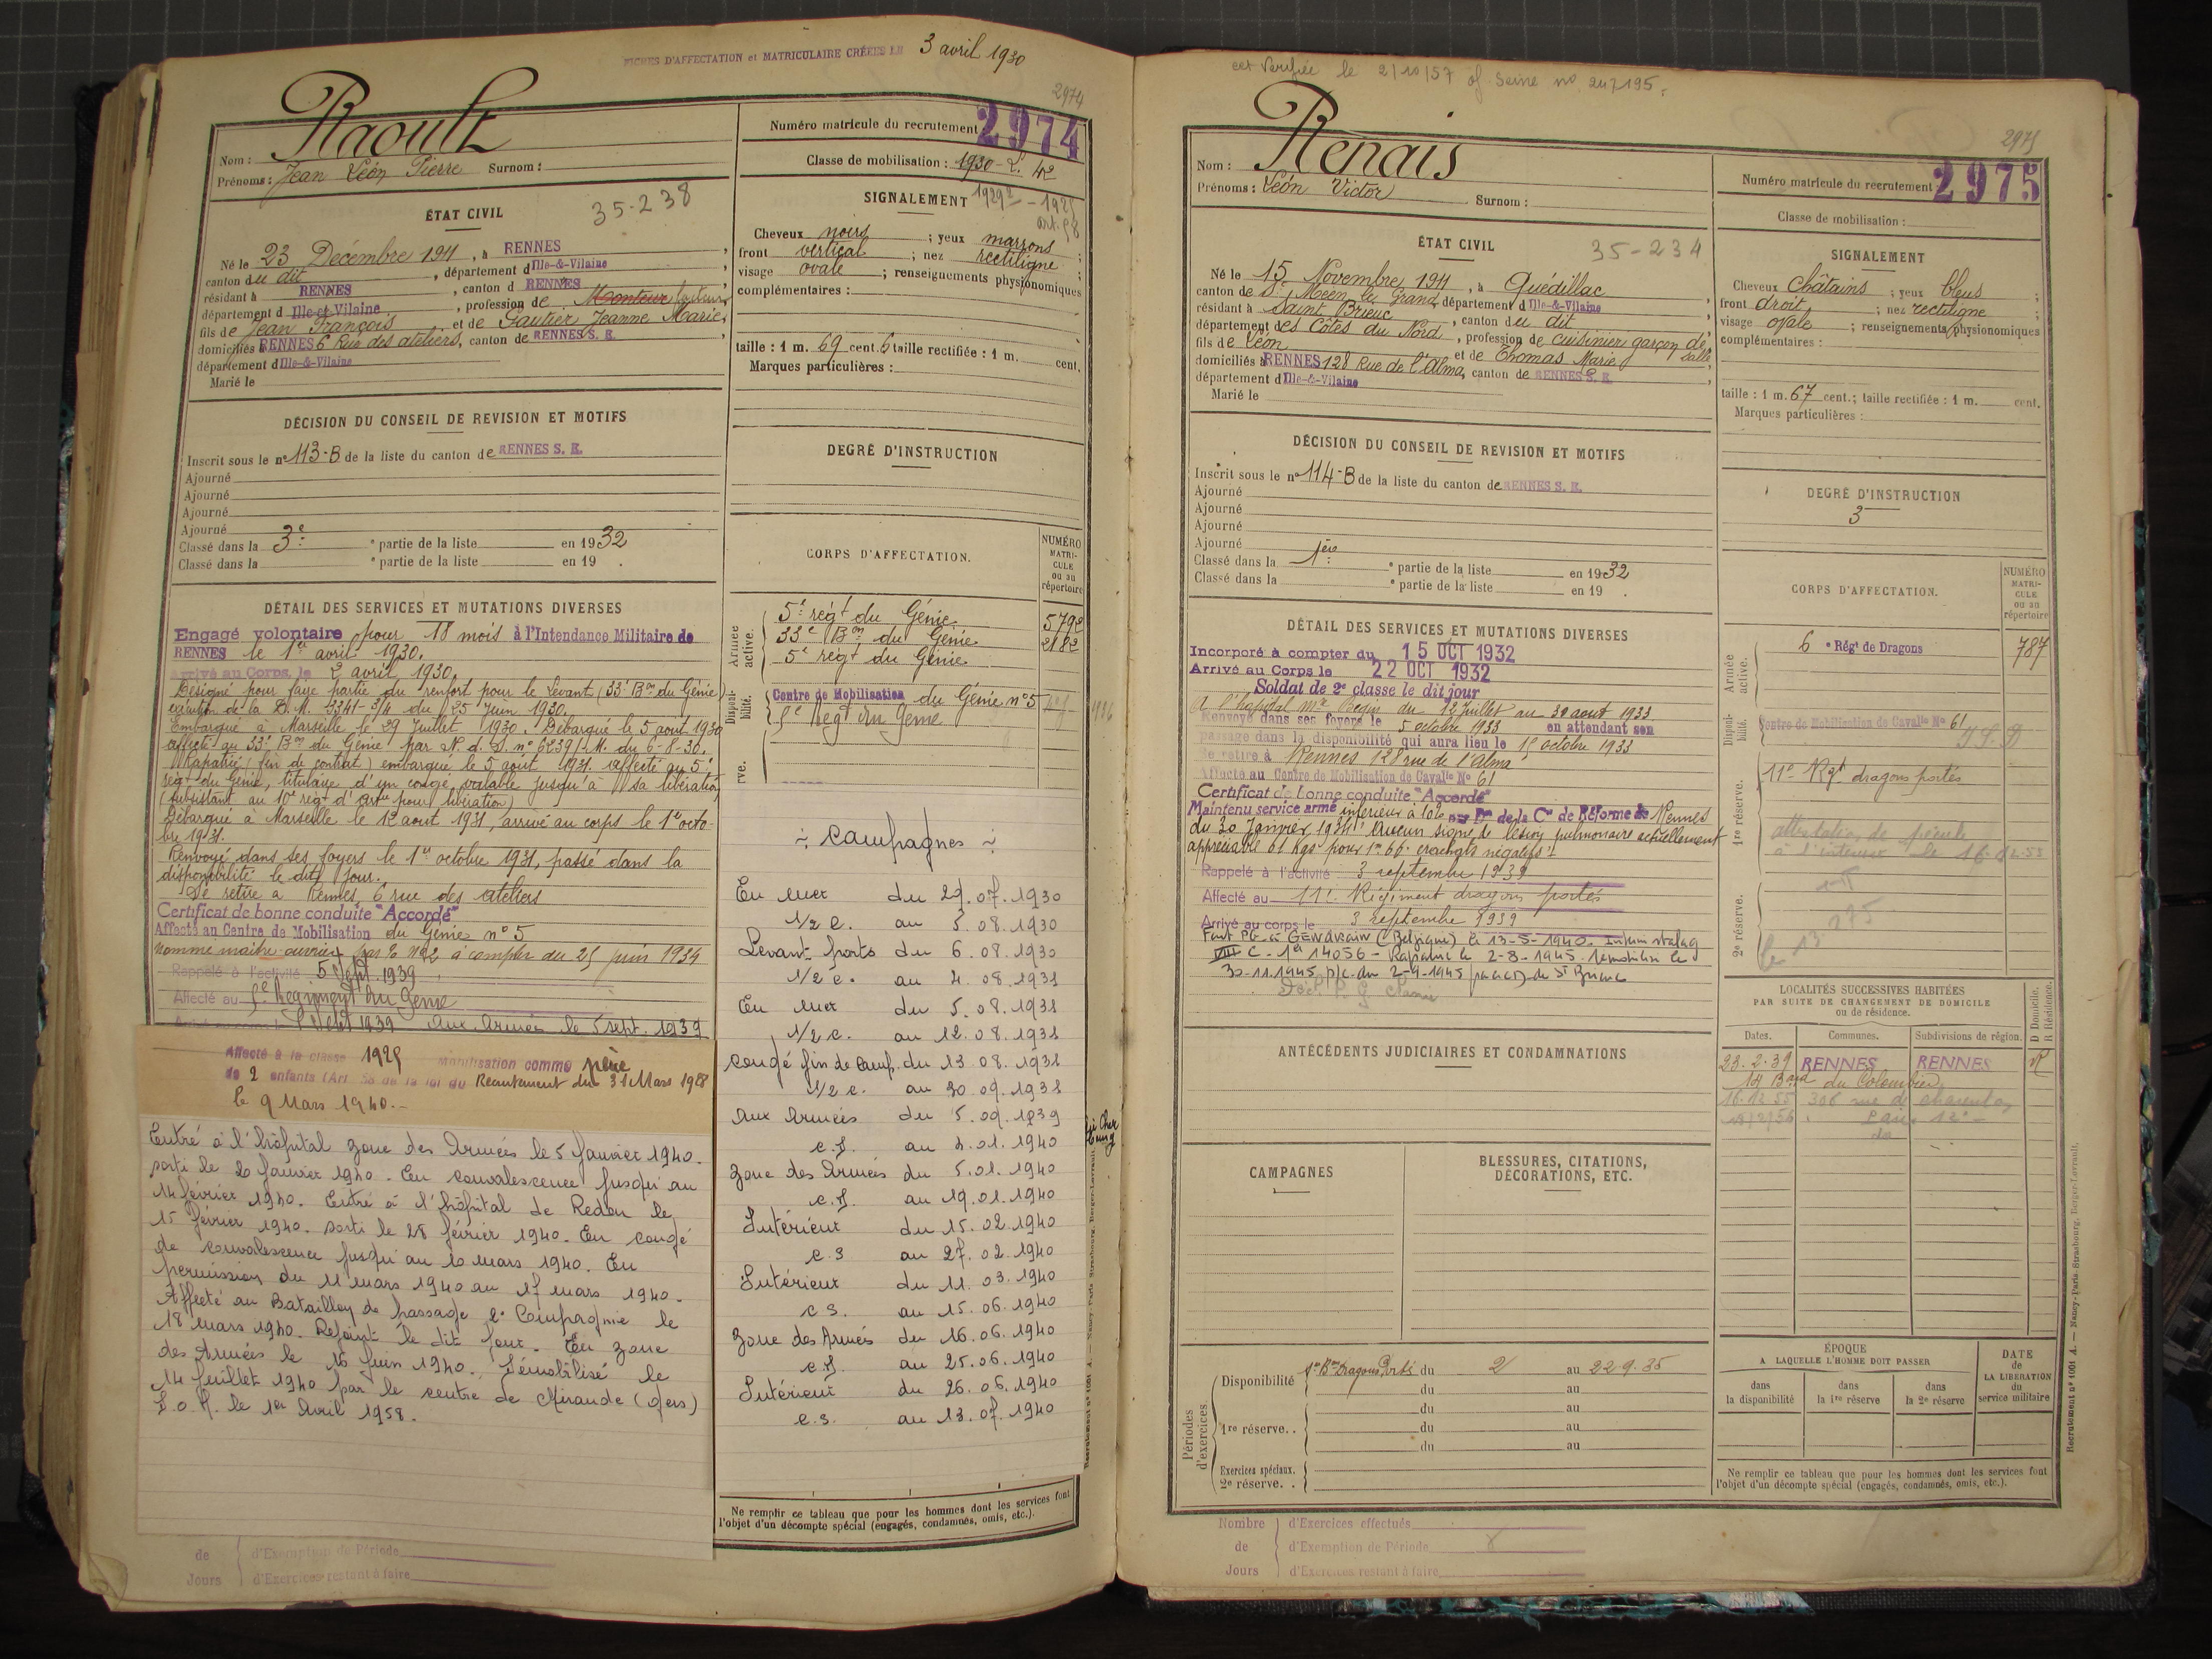 FICHES D'AFFECTATION et MATRICULAIRE CRÉÉES LE 3 avril 1930
2974
Nom : Raoult
Prénoms : Jean Léon Pierre Surnom :
Numéro matricule du recrutement 2974
Classe de mobilisation : 1930
ÉTAT CIVIL
35-238
Né le 23 Décembre 1911, à RENNES,
canton du dit, département d Ille-&-Vilaine,
résidant à RENNES, canton d RENNES,
département d Ille-et-Vilaine, profession de Monteur facteur,
fils de Jean François et de Gautier Jeanne Marie,
domiciliés à RENNES 6 Rue des ateliers, canton de RENNES S. E.,
département d Ille-&-Vilaine
Marié le
SIGNALEMENT
Cheveux noirs ; yeux marrons ;
front vertical ; nez rectiligne ;
visage ovale ; renseignements physionomiques
complémentaires :
taille : 1 m. 69 cent. 6 taille rectifiée : 1 m. cent.
Marques particulières :
DÉCISION DU CONSEIL DE REVISION ET MOTIFS
Inscrit sous le n° 113-B de la liste du canton de RENNES S. E.
Ajourné
Ajourné
Ajourné
Ajourné
Classé dans la 3e ° partie de la liste en 1932
Classé dans la ° partie de la liste en 19 .
DEGRÉ D'INSTRUCTION
CORPS D'AFFECTATION.
NUMÉRO MATRI-CULE ou au répertoire
Armée active.
5e régt du Génie 5792
33e Bon du Génie 2182
5e régt du Génie
Disponi-bilité.
Centre de Mobilisation du Génie n°5
5e Régt du Génie
DÉTAIL DES SERVICES ET MUTATIONS DIVERSES
Engagé volontaire pour 18 mois à l'Intendance Militaire de
RENNES le 1er avril 1930.
Arrivé au Corps, le 2 avril 1930.
Désigné pour faire partie du renfort pour le Levant (33e Bon du Génie)
exécution de la D.M. 3341-3/4 du 25 Juin 1930.
Embarqué à Marseille le 29 Juillet 1930. Débarqué le 5 août 1930
affecté au 33e Bon du Génie par N. d. S. n° 6239/M. du 6-8-30.
Rapatrié (fin de contrat) embarqué le 5 août 1931. affecté au 5e
régt du Génie, titulaire d'un congé valable jusqu'à sa libération
(subsistant au 10e régt d'artie pour libération)
Débarqué à Marseille le 12 août 1931, arrivé au corps le 1er octo-
bre 1931.
Renvoyé dans ses foyers le 1er octobre 1931, passé dans la
disponibilité le dit jour.
Se retire à Rennes, 6 rue des ateliers
Certificat de bonne conduite "Accordé"
Affecté au Centre de Mobilisation du Génie n°5
nommé maître-ouvrier à compter du 25 juin 1934
Rappelé à l'activité 5 Sept. 1939
Affecté au 5e Régiment du Génie
Sept 1939 aux Armées le 5 sept. 1939
Affecté à la classe 1925 mobilisation comme père
de 2 enfants (Art. 58 de la loi du Recrutement du 31 Mars 1928
le 9 Mars 1940.-
Entré à l'hôpital zone des Armées le 5 Janvier 1940.
sorti le 20 Janvier 1940. En convalescence jusqu'au
14 février 1940. Entré à l'hôpital de Redon le
15 février 1940. sorti le 28 février 1940. En congé
de convalescence jusqu'au 10 mars 1940. En
permission du 11 mars 1940 au 17 mars 1940.
Affecté au Bataillon de passage 2e Compagnie le
18 mars 1940. Rejoint le dit jour. En zone
des Armées le 16 juin 1940. Démobilisé le
14 juillet 1940 par le centre de Mirande (Gers)
L.O.M. le 1er Avril 1958.
÷ Campagnes ÷
En mer du 29.07.1930
1/2 c. au 5.08.1930
Levant ports du 6.08.1930
1/2 c. au 4.08.1931
En mer du 5.08.1931
1/2 c. au 12.08.1931
Congé fin de camp. du 13.08.1931
1/2 c. au 30.09.1931
Aux Armées du 5.09.1939
c.d. au 4.01.1940
Zone des Armées du 5.01.1940
c.d. au 19.01.1940
Intérieur du 15.02.1940
c.s au 27.02.1940
Intérieur du 11.03.1940
c s. au 15.06.1940
Zone des Armées du 16.06.1940
c.d. au 25.06.1940
Intérieur du 26.06.1940
c.s. au 13.07.1940
Ne remplir ce tableau que pour les hommes dont les services font
l'objet d'un décompte spécial (engagés, condamnés, omis, etc.).
de
Jours
d'Exemption de Période
d'Exercices restant à faire
le 2/10/57 of Seine no 247195.
2975
Nom : Renais
Prénoms : Léon Victor Surnom :
Numéro matricule du recrutement 2975
Classe de mobilisation :
ÉTAT CIVIL
35-234
Né le 15 Novembre 1911, à Quédillac,
canton de St Méen le Grand, département d Ille-&-Vilaine
résidant à Saint Brieuc, canton du dit,
département des Côtes du Nord, profession de cuisinier garçon de salle,
fils de Léon et de Thomas Marie,
domiciliés à RENNES 128 Rue de l'Alma, canton de RENNES S. E.,
département d Ille-&-Vilaine
Marié le
SIGNALEMENT
Cheveux Châtains ; yeux bleus ;
front droit ; nez rectiligne
visage ovale ; renseignements physionomiques
complémentaires :
taille : 1 m. 67 cent.; taille rectifiée : 1 m. cent.
Marques particulières :
DÉCISION DU CONSEIL DE REVISION ET MOTIFS
Inscrit sous le n° 114-B de la liste du canton de RENNES S. E.
Ajourné
Ajourné
Ajourné
Ajourné
Classé dans la 1ère ° partie de la liste en 1932
Classé dans la ° partie de la liste en 19 .
DEGRÉ D'INSTRUCTION
3
CORPS D'AFFECTATION.
NUMÉRO MATRI-CULE ou au répertoire
Armée active.
6 ° Régt de Dragons 787
Disponi-bilité.
Centre de Mobilisation de Cavalie N° 61
1re réserve.
11e Rgt dragons portés
attestation de pécule
à l'intéressé le 16-12-55
2e réserve.
DÉTAIL DES SERVICES ET MUTATIONS DIVERSES
Incorporé à compter du 15 OCT 1932
Arrivé au Corps le 22 OCT 1932
Soldat de 2e classe le dit jour
A l'hôpital Mre Begin du 12 Juillet au 30 août 1933
Renvoyé dans ses foyers le 5 octobre 1933 en attendant son
passage dans la disponibilité qui aura lieu le 15 octobre 1933
Se retire à Rennes 128 rue de l'Alma
Affecté au Centre de Mobilisation de Cavalie N° 61
Certificat de bonne conduite "Accordé"
Maintenu service armé inférieur à 10% par Don de la Con de Réforme de Rennes
du 30 Janvier 1934 : Aucun signe de lésion pulmonaire actuellement
appréciable 61 kgs pour 1m66. crachats négatifs !
Rappelé à l'activité 3 septembre 1939
Affecté au 11e Régiment dragons portés
Arrivé au corps le 3 septembre 1939
Fait PG à (Belgique) le 13-5-1940. Interné stalag
VIII C - 14056 - Rapatrié le 2-8-1945. Démobilisé le
30-11-1945 p/c. du 2-9-1945 de St Brieuc
LOCALITÉS SUCCESSIVES HABITÉES
PAR SUITE DE CHANGEMENT DE DOMICILE
ou de résidence.
D Domicile. R Résidence.
Dates. Communes. Subdivisions de région.
23.2.39 RENNES RENNES R
14 Bard du Colombier
16.12.55 306 rue de Charenton
Paris 12e
ANTÉCÉDENTS JUDICIAIRES ET CONDAMNATIONS
CAMPAGNES
BLESSURES, CITATIONS,
DÉCORATIONS, ETC.
Périodes d'exercices.
Disponibilité Bon Dragons Portés du 2 au 22-9-35
du au
1re réserve. . du au
du au
du au
Exercices spéciaux.
2e réserve. .
ÉPOQUE
A LAQUELLE L'HOMME DOIT PASSER
dans la disponibilité
dans la 1re réserve
dans la 2e réserve
DATE de LA LIBÉRATION du service militaire
Ne remplir ce tableau que pour les hommes dont les services font
l'objet d'un décompte spécial (engagés, condamnés, omis, etc.).
Recrutement n° 1001 A. — Nancy-Paris-Strasbourg, Berger-Levrault.
Nombre de Jours
d'Exercices effectués
d'Exemption de Période
d'Exercices restant à faire